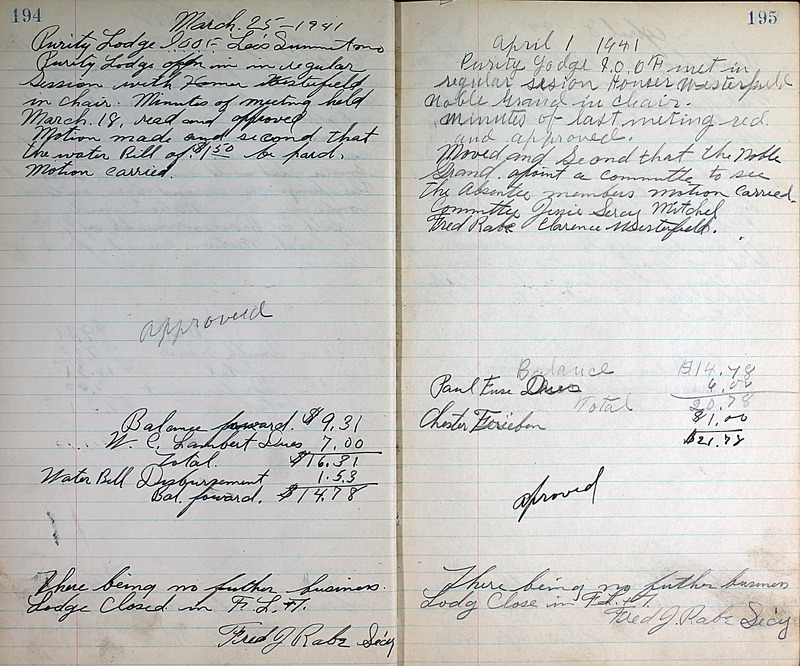 194
March. 25 - 1941
Purity Lodge I.O.O.F. Lees Summit mo
Purity Lodge opn in in regular
Session with Homer Westerfield
in chair. Minutes of meeting held
March. 18, read and aproved
Motion made and second that
the water Bill of. $1.50 be paid.
Motion carried.
approved
Balance forward. $9.31
W. C. Lambert Dues 7.00
Total. $16.31
Water Bill Disbursement 1.53
Bal. forward. $14.78
There being no futher business.
Lodge Closed in F. L. + T.
Fred J Rabe Sec'y
195
April 1 1941
Purity Lodge I.O.O.F met in
regular sesion Homer Westerfield
Noble Grand in Chair.
minutes of last meting red
and approved.
Moved and Second that the Noble
Grand. apoint a committe to see
the Absentee members motion carried.
Committee Mitchel
Fred Rabe Clarence Westerfield.
Balance $14.78
Paul Fuse Dues 6.00
Total 20.78
Chester $1.00
$21.78
aproved
There being no futher business
Lodg Close in F. L. + T.
Fred J. Rabe Sec'y